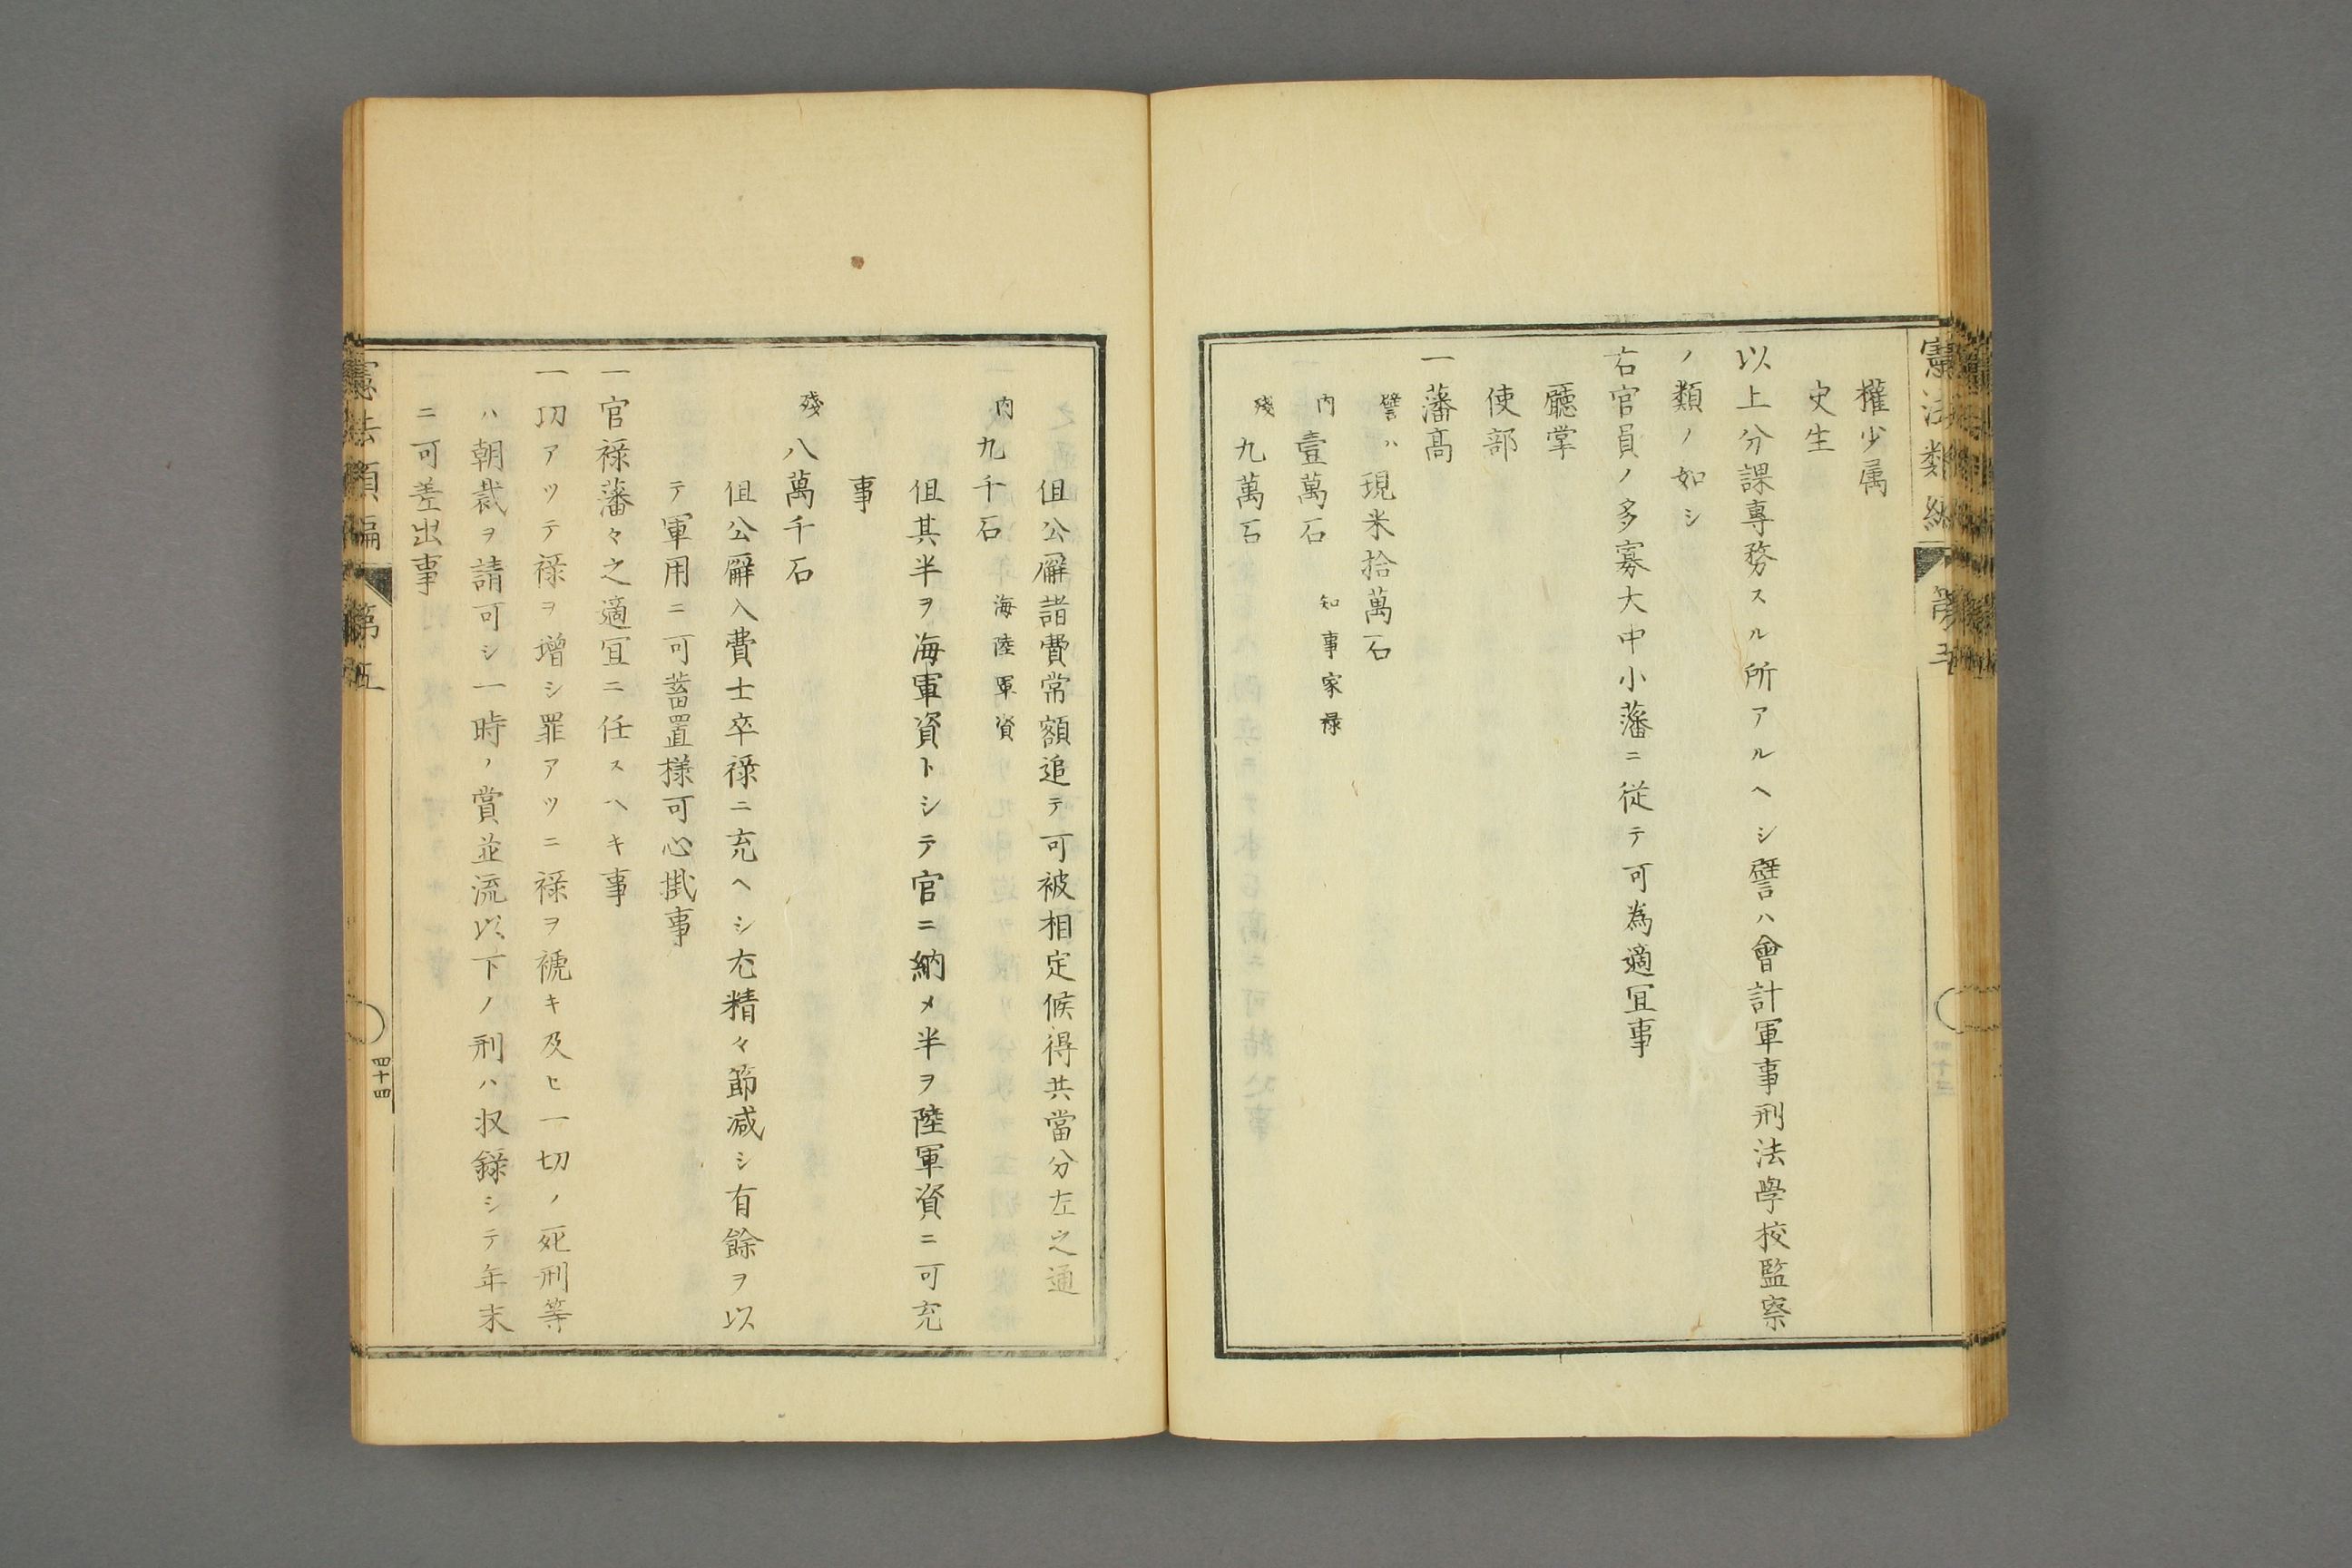 憲法類編 第五
權少属
史生
以上分課專務スル所アルヘシ譬ハ會計軍事刑法學校監察
ノ類ノ如シ
右官員ノ多寡大中小藩ニ従テ可為適冝事
聽掌
使部
一藩髙
譬ハ現米拾萬石
内壹萬石 知事家禄
殘九萬石
伹公廨諸費常額追テ可被相定候得共當分左之通
内九千石 海陸軍資
伹其半ヲ海軍資トシテ官ニ納メ半ヲ陸軍資ニ可充
事
殘八萬千石
伹公廨入費士卒禄ニ充ヘシ尤精々節減シ有餘ヲ以
テ軍用ニ可蓄置様可心掛事
一官禄藩々之適冝ニ任スヘキ事
一功アツテ禄ヲ增シ罪アツニ禄ヲ褫キ及ヒ一切ノ死刑等
ハ朝裁ヲ請可シ一時ノ賞並流以下ノ刑ハ収録シテ年末
ニ可差出事
憲法類編 第五
四十四